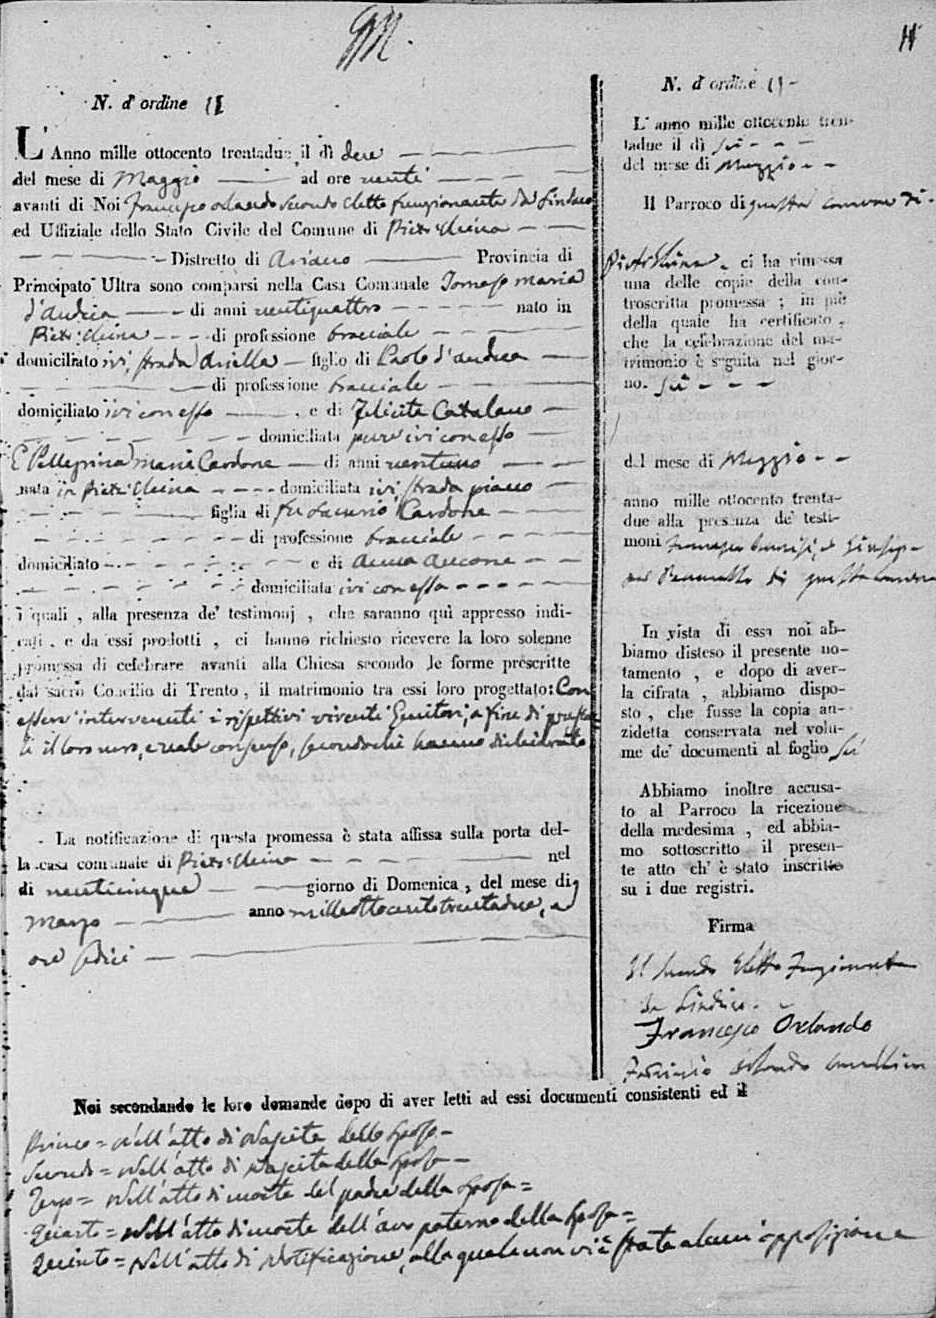 M.
11
N. d'ordine 11
L'Anno mille ottocento trentadue il dì dere
del mese di Maggio ad ore venti
avanti di Noi Francesco Orlando secondo eletto funzionante da Sindaco
ed Uffiziale dello Stato Civile del Comune di Pietrelcina
Distretto di Ariano Provincia di
Principato Ultra sono comparsi nella Casa Comunale Tomaso Maria
d'Andrea di anni ventiquattro nato in
Pietrelcina di professione bracciale
domiciliato ivi, strada figlio di Paolo d'Andrea
di professione bracciale
domiciliato ivi con esso, e di Felicita Catalano
domiciliata pure ivi con esso
E Pellegrina Maria Cardone di anni ventuno
nata in Pietrelcina domiciliata ivi strada piano
figlia di fu Cardone
di professione bracciale
domiciliato e di Anna
domiciliata ivi con essa
i quali, alla presenza de' testimonj, che saranno quì appresso indi-
cati, e da essi prodotti, ci hanno richiesto ricevere la loro solenne
promessa di celebrare avanti alla Chiesa secondo le forme prescritte
dal sacro Concilio di Trento, il matrimonio tra essi loro progettato: Con
esservi intervenuti i rispettivi viventi Genitori, a fine di presta-
re il loro vero, e reale consenso, secondochè hanno dichiarato
La notificazione di questa promessa è stata affissa sulla porta del-
la casa comunale di Pietrelcina nel
dì venticinque giorno di Domenica, del mese di
Marzo anno mille ottocento trentadue, ad
ore sedici
N. d'ordine 11
L'anno mille ottocento tren-
tadue il dì sei
del mese di Maggio
Il Parroco di questo comune di
Pietrelcina ci ha rimessa
una delle copie della con-
troscritta promessa; in piè
della quale ha certificato,
che la celebrazione del ma-
trimonio è seguita nel gior-
no sei
del mese di Maggio
anno mille ottocento trenta-
due alla presenza de' testi-
moni Francesco e Giusep-
pe di questo Comune
In vista di essa noi ab-
biamo disteso il presente no-
tamento, e dopo di aver-
la cifrata, abbiamo dispo-
sto, che fusse la copia an-
zidetta conservata nel volu-
me de' documenti al foglio sei
Abbiamo inoltre accusa-
to al Parroco la ricezione
della medesima, ed abbia-
mo sottoscritto il presen-
te atto ch' è stato inscritto
su i due registri.
Firma
Il Secondo Eletto Funzionante
da Sindaco
Francesco Orlando
Orlando Cancelliere
Noi secondando le loro domande dopo di aver letti ad essi documenti consistenti ed il
Primo = Nell'atto di Nascita dello sposo
Secondo = Nell'atto di Nascita della sposa
Terzo = Nell'atto di morte del padre della sposa =
Quarto = Nell'atto di morte dell'avo paterno della sposa =
Quinto = Nell'atto di Notificazione, alla quale non vi è stata alcuna opposizione